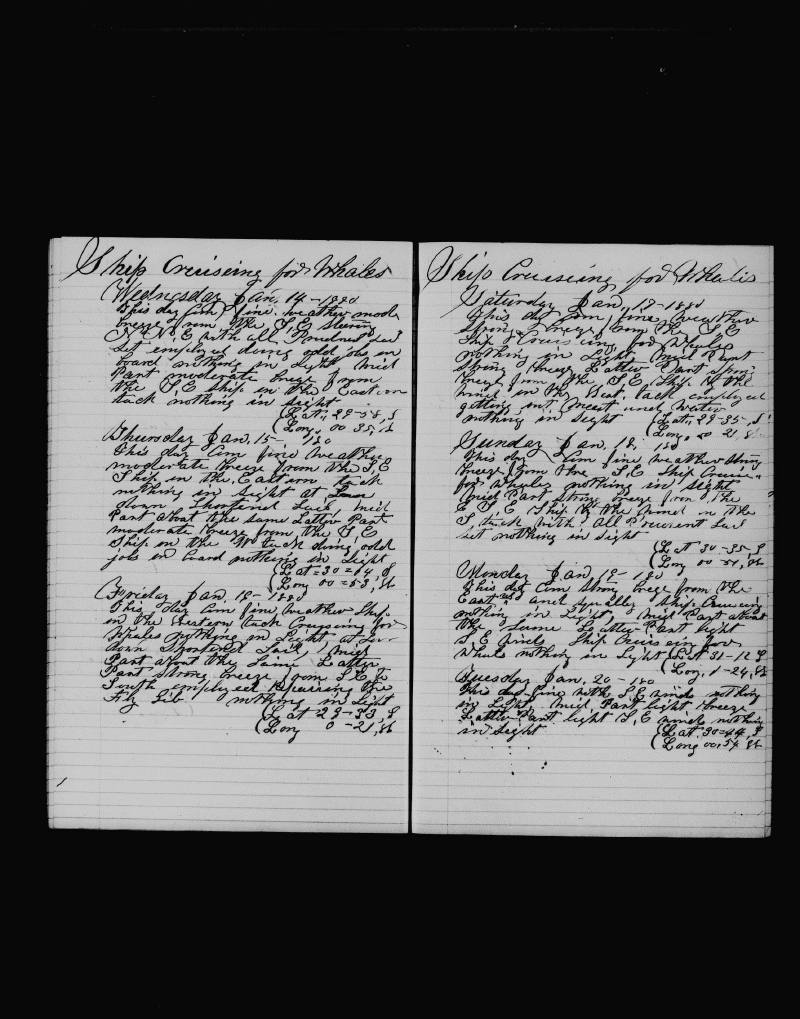 Ship Cruiseing for Whales
Wednesday Jan. 14 - 1880
this day Com fine weather mod
breeze from the S.E. steering
N.N.E with all Precent sail
set employed doing odd jobs on
board nothing in Sight Mid
Part moderate breeze from
the S.E Ship in the Eastern
tack nothing in Sight
(Lat. 29-58, S
(Long. 00 35,
Thursday Jan. 15 - 180
this day Com fine Weather
moderate breeze from the S.E
Ship in the Eastern tack
nothing in Sight at
down Shortened Sail, Mid
Part about the same Latter Part
moderate breeze from the S.E
Ship on the W tack doing odd
jobs on board nothing in Sight
(Lat = 30 = 04 S
(Long 00 = 53,
Friday Jan. 16 - 1880
this day Com fine weather Ship
in the Western tack Cruising for
Whales nothing in Sight at Sun
down Shortened Sail, Mid
Part about the Same Latter
Part strong breeze from S.E to
South employed Repairing the
Fly Jib nothing in Sight
(Lat 29-33, S
(Long 0 - 21,
Ship Cruiseing for Whales
Saturday Jan. 17 - 1880
this day Com fine Weather
Strong breeze from the S.E
Ship Cruising for Whales
nothing in Sight, Mid Part
Strong breeze Latter Part Strong
breeze from the S.E Ship to the
wind in the West. tack employed
getting out meat and water
nothing in Sight (Lat. 29-35, S
(Long. 00 21,
Sunday Jan. 18, 180
this day Com fine Weather Strong
breeze from the S.E Ship Cruise
for Whales nothing in Sight
Mid Part Strong breeze from the
E.S.E Ship to the wind on the
S. tack with all Precent Sail
set nothing in Sight
(Lat 30-35-S
(Long 00-51,
Monday Jan 19 - 180
this day Com Strong brege from the
East and Squally Ship Cruising
nothin in Sight, Mid Part about
the Same Latter Part light
S.E winds Ship Cruiseing for
Whals nothing in Sight (Lat 31-12 S
(Long, 1-24,
Tuesday Jan, 20 - 180
this day fine with S.E winds nothing
in Sight, Mid, Part light breeze
Latter Part light S,E winds nothing
in Sight (Lat 30=44, S
(Long 00,54